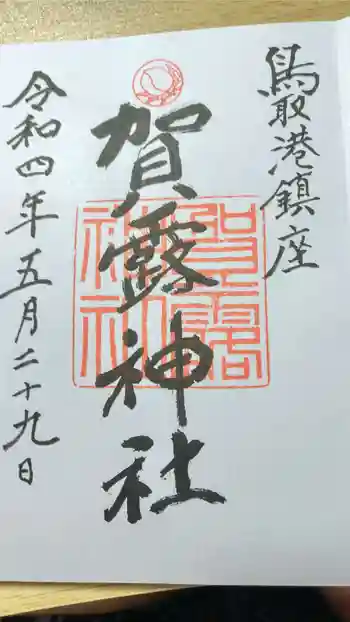 鳥取港鎮座
賀露神社
令和四年五月二十九日
賀露神社